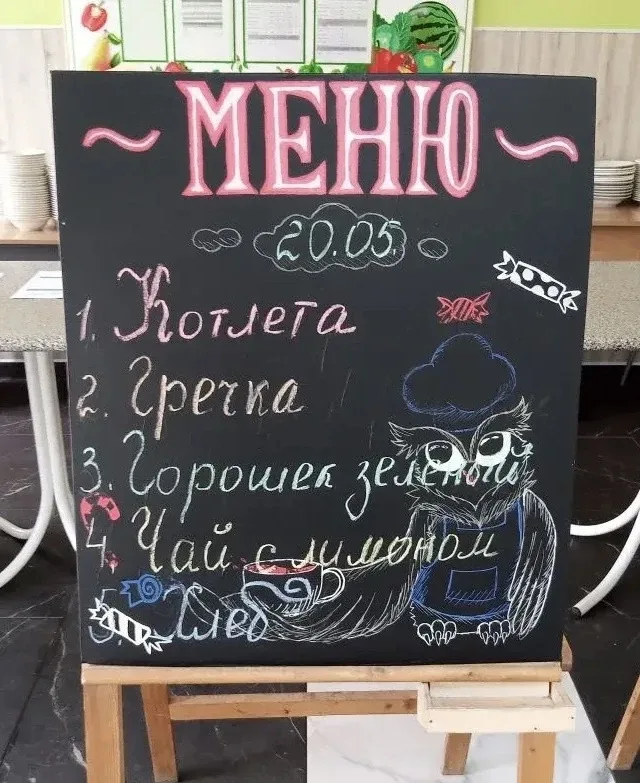 ~МЕНЮ~
20.05.
1. Котлета
2. Гречка
3. Горошек зеленый
4. Чай с лимоном
5. Хлеб